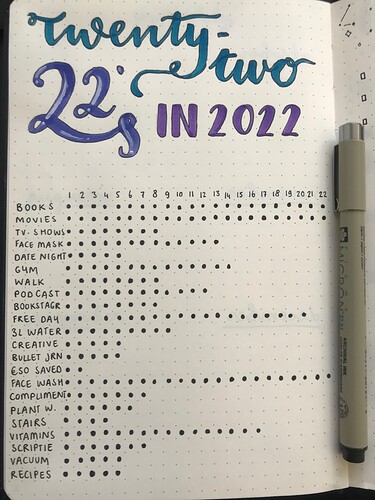 Twenty-
two
22's IN 2022
1 2 3 4 5 6 7 8 9 10 11 12 13 14 15 16 17 18 19 20 21 22
BOOKS
MOVIES
TV-SHOWS
FACE MASK
DATE NIGHT
GYM
WALK
PODCAST
BOOKSTAGR
FREE DAY
3L WATER
CREATIVE
BULLET JRN
€50 SAVED
FACE WASH
COMPLIMENT
PLANT W.
STAIRS
VITAMINS
SCRIPTIE
VACUUM
RECIPES
MICRON